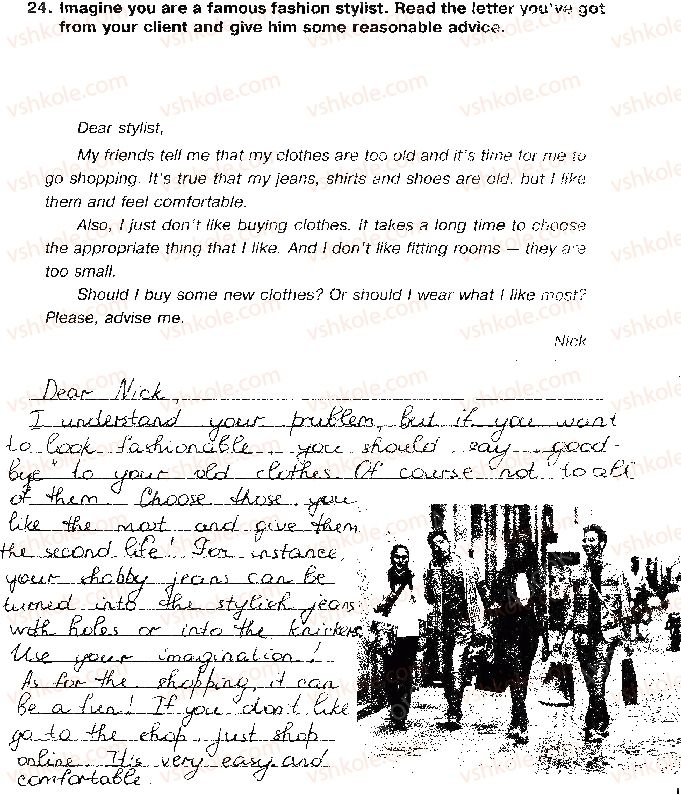 24. Imagine you are a famous fashion stylist. Read the letter you've got
from your client and give him some reasonable advice.
Dear stylist,
My friends tell me that my clothes are too old and it's time for me to
go shopping. It's true that my jeans, shirts and shoes are old, but I like
them and feel comfortable.
Also, I just don't like buying clothes. It takes a long time to choose
the appropriate thing that I like. And I don't like fitting rooms — they are
too small.
Should I buy some new clothes? Or should I wear what I like most?
Please, advise me.
Nick
Dear Nick,
I understand your problem, but if you want
to look fashionable, you should say "good-
bye" to your old clothes. Of course not to all
of them. Choose those you
like the most and give them
the second life! For instance,
your shabby jeans can be
turned into the stylish jeans
with holes or into the knickers.
Use your imagination!
As for the shopping, it can
be a fun! If you don't like
go to the shop, just shop
online. It's very easy and
comfortable.
vshkole.com